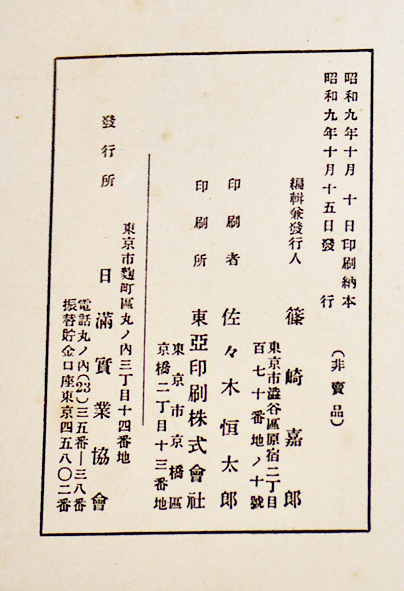 昭和九年十月十日印刷納本
昭和九年十月十五日發行
(非賣品)
東京市澁谷區原宿二丁目
百七十番地ノ十號
編輯兼發行人 篠崎嘉郎
印刷者 佐々木恒太郎
印刷所 東亞印刷株式會社
東京市京橋區
京橋二丁目十三番地
東京市麴町區丸ノ內三丁目十四番地
發行所 日滿實業協會
電話丸ノ內(23)三五番—三八番
振替貯金口座東京四五八〇二番